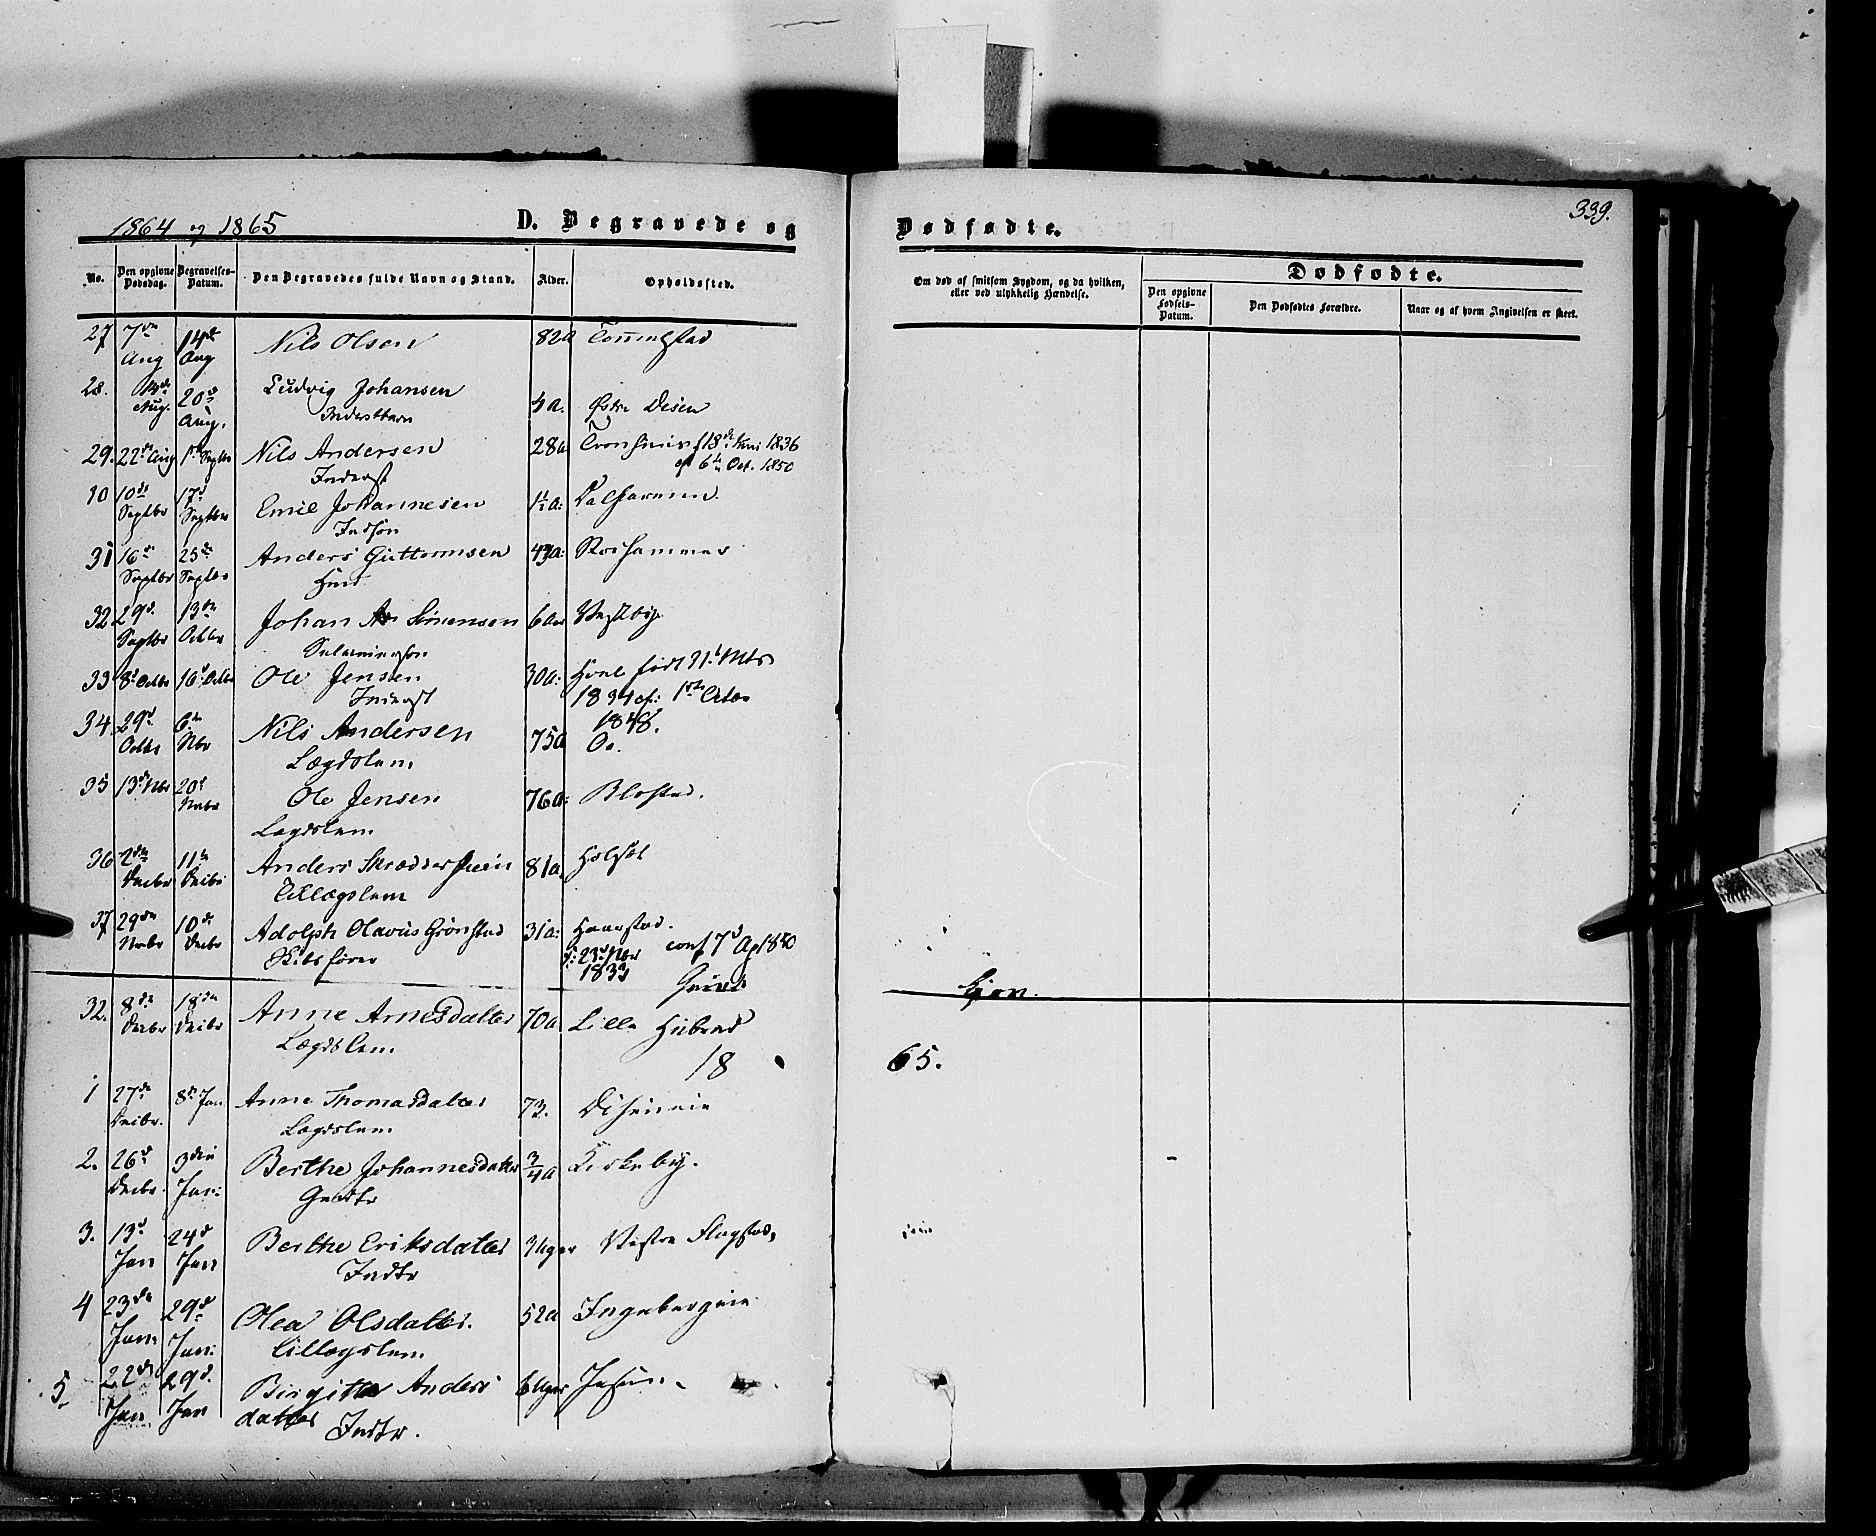 1864 og 1865
D. Begravede og
Dødfødte.
339.
No.
Den opgivne Dødsdag.
Begravelses-Datum.
Den Begravedes fulde Navn og Stand.
Alder.
Opholdssted.
Om død af smitsom Sygdom, og da hvilken, eller ved ulykkelig Hændelse.
Dødfødte.
Den opgivne Fødsels-Datum.
Den Dødfødtes Forældre.
Naar og af hvem Angivelsen er skeet.
27 7de Aug 14de Aug Nils Olsen 82a
28. 14de Aug. 20de Aug. Ludvig Johansen 4a. Østre Disen
29. 22de Aug 1ste Septbr Nils Andersen 28a 18de Juni 1836
Inderst 6te Oct. 1850
30 10de Septbr 17de Septbr Emil Johannesen 1½a:
31 16de Septbr 25de Septbr Anders Guttormsen 43a:
Huus
32 29de Septbr 13de Octbr Johan Simensen 6aar Vestby
33 8de Octbr 16de Octbr Ole Jensen 30a: født 31te
Inderst 1834 1ste Octbr
1848.
34. 29de Octbr 6te Nbr Nils Andersen 75a Do.
Lægdslem.
35 13de Nbr 20de Nvbr Ole Jensen 76a:
Lægdslem.
36 2den Decbr 11te Decbr Anders 81a.
Tillægslem
37 29de Novbr 10de Decbr Adolph Olavus Grønstad 31a: Haanstad.
f: 23de Nbr conf 7de Ap 1850
1833
Qvind
kjøn.
32. 8de Decbr 18de Decbr Anne Arnesdatter 70a Lille
Lægdslem
18
65.
1 27de Decbr. 8de Jan Anne Thomasdatter 73.
Lægdslem
2. 26de Decbr. 3die Jan: Berthe Johannesdatter 3/4a Kirkeby.
3. 13de Jan 24de Jan Berthe Eriksdatter 3 Uger Vestre Flagstad,
Indtr
4 23de Jan: 29de Jan: Olea Olsdatter. 52a Ingebergeie
Tillægslem
5. 22de Jan. 29de Jan Birgitte Anders 6 Uger
datter Indtr.